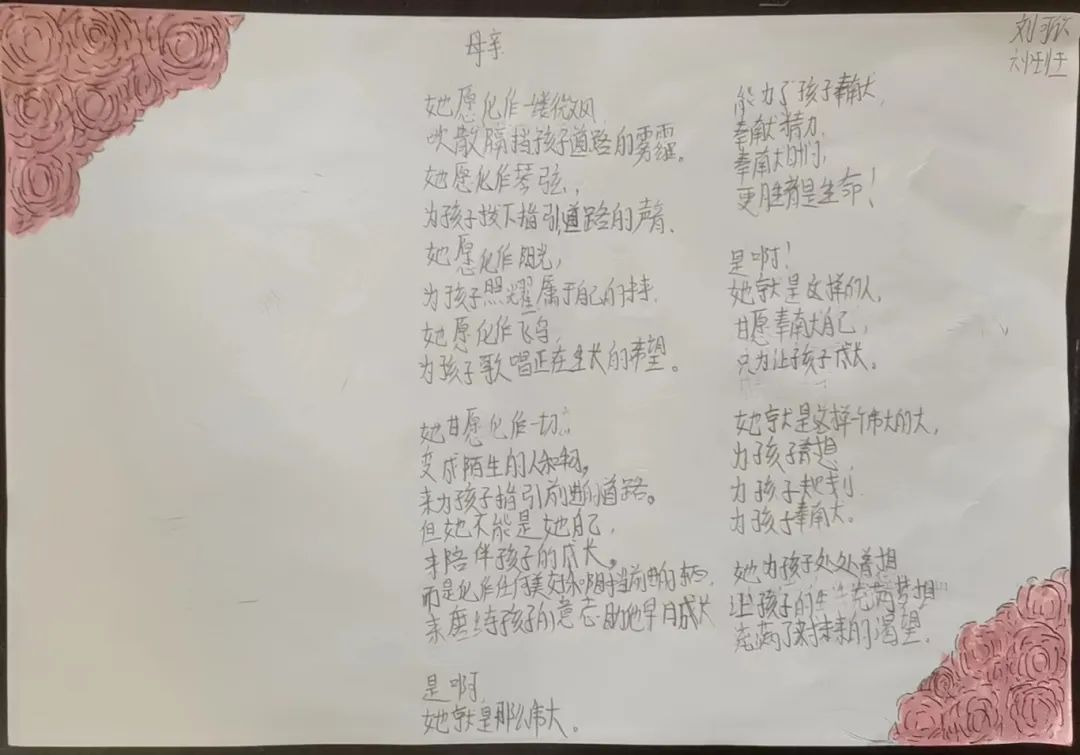 母亲
她愿化作一缕微风,
吹散隔挡孩子道路的雾霾。
她愿化作琴弦,
为孩子拨下指引道路的声音、
她愿化作阳光,
为孩子照耀属于自己的未来.
她愿化作飞鸟,
为孩子歌唱正在生长的希望。
她甘愿化作一切
变成陌生的人和物,
来为孩子指引前进的道路。
但她不能是她自己,
来陪伴孩子的成长。
而是化作任何美好和阻挡前进的东西,
来磨练孩子的意志.助他早日成长
是啊
她就是那么伟大。
能为了孩子奉献,
奉献精力,
奉献时间,
更甚者是生命!
是啊!
她就是这样的人,
甘愿奉献自己,
只为让孩子成长。
她就是这样一个伟大的人,
为孩子着想
为孩子规划
为孩子奉献。
她为孩子处处着想
让孩子的生活充满梦想
充满了对未来的渴望。
刘